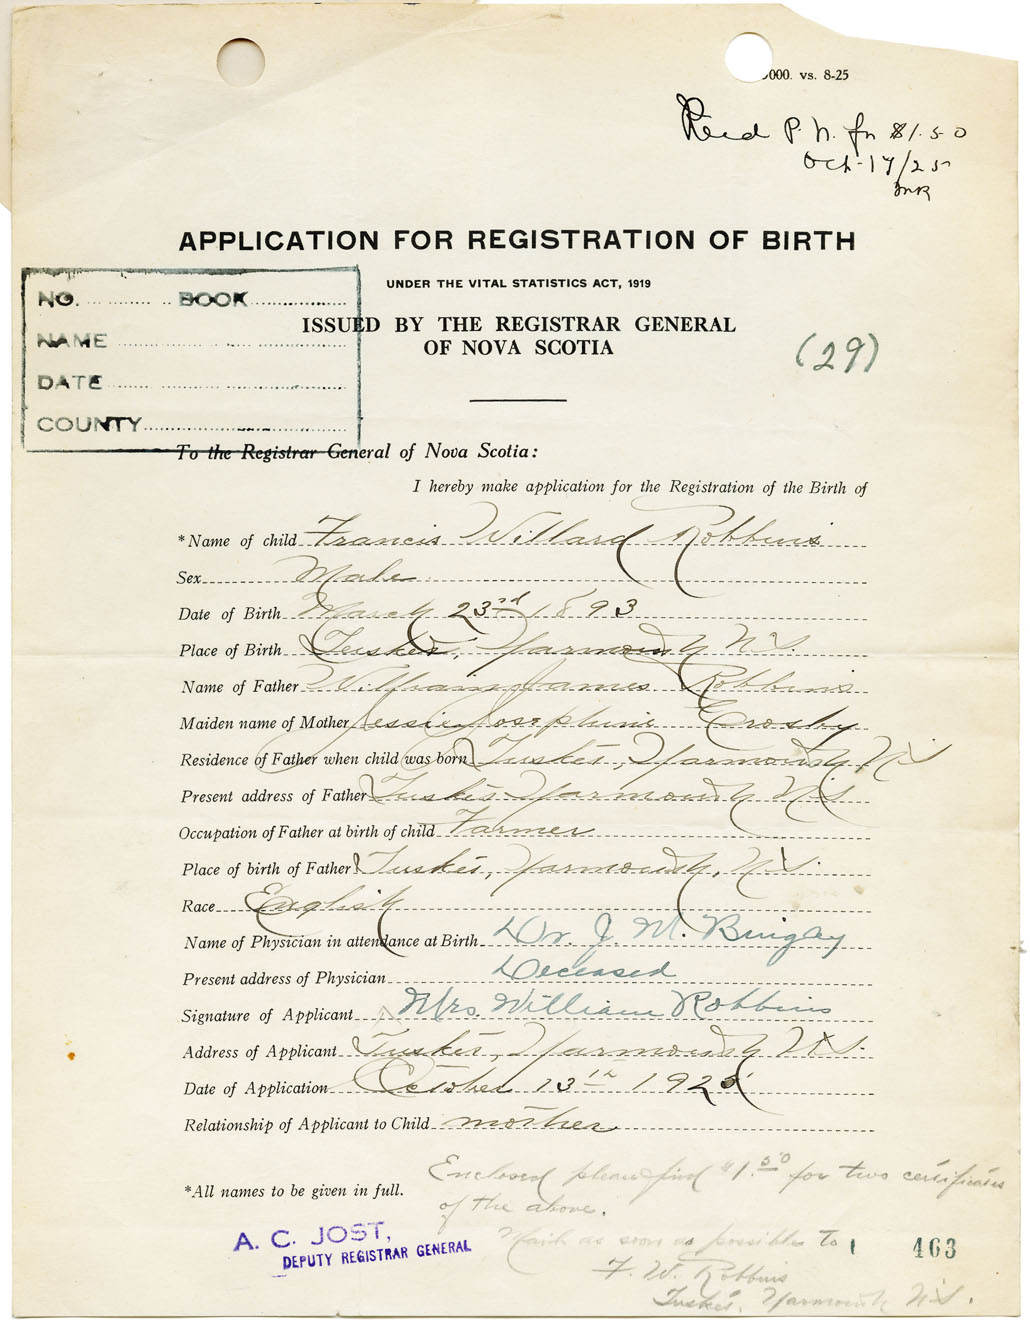 000. vs. 8-25
Recd P. N. for $1.50
Oct-17/25
APPLICATION FOR REGISTRATION OF BIRTH
UNDER THE VITAL STATISTICS ACT, 1919
ISSUED BY THE REGISTRAR GENERAL
OF NOVA SCOTIA
(29)
NO. BOOK
NAME
DATE
COUNTY
To the Registrar General of Nova Scotia:
I hereby make application for the Registration of the Birth of
*Name of child Francis Willard Robbins
Sex Male
Date of Birth March 23rd 1893
Place of Birth Tusket, Yarmouth N.S.
Name of Father William James Robbins
Maiden name of Mother Jessie Josephine Crosby
Residence of Father when child was born Tusket, Yarmouth N.S
Present address of Father Tusket Yarmouth N.S
Occupation of Father at birth of child Farmer
Place of birth of Father Tusket, Yarmouth, N.S.
Race English
Name of Physician in attendance at Birth Dr. J. M. Bingay
Present address of Physician Deceased
Signature of Applicant Mrs. William Robbins
Address of Applicant Tusket, Yarmouth N.S.
Date of Application October 13th 1925
Relationship of Applicant to Child mother
Enclosed please find $1.50 for two certificates
*All names to be given in full.
of the above.
A. C. JOST,
DEPUTY REGISTRAR GENERAL
Mail as soon as possible to
463
F. W. Robbins
Tusket, Yarmouth N.S.